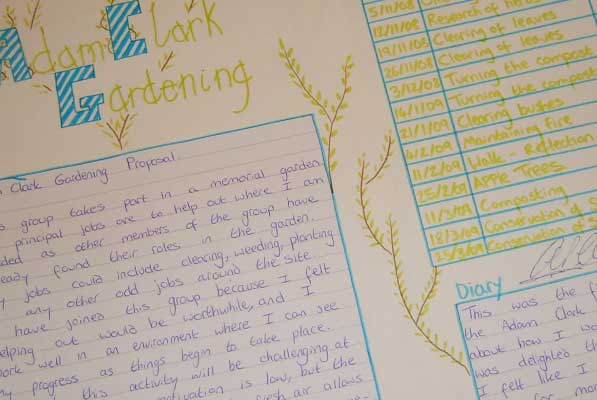 Adam Clark
Gardening
Clark Gardening Proposal
group takes part in a memorial garden.
principal jobs are to help out where I am
as other members of the group have
found their roles in the garden.
jobs could include clearing, weeding, planting
any other odd jobs around the site.
have joined this group because I felt
helping out would be worthwhile, and I
work well in an environment where I can see
my progress as things begin to take place.
this activity will be challenging at
is low, but the
fresh air allows
5/11/08
12/11/08 Research of herbs
19/11/08 Clearing of leaves
26/11/08 Clearing of leaves
3/12/08 Turning the compost
14/1/09 Turning the compost
21/1/09 Clearing bushes
4/2/09 Maintaining fire
11/2/09 Walk - Reflection
25/2/09 Apple Trees
11/3/09 Composting
18/3/09 Conservation of
25/3/09 Conservation of
Diary
This was the
the Adam Clark
about how I
was delighted
I felt like I
for